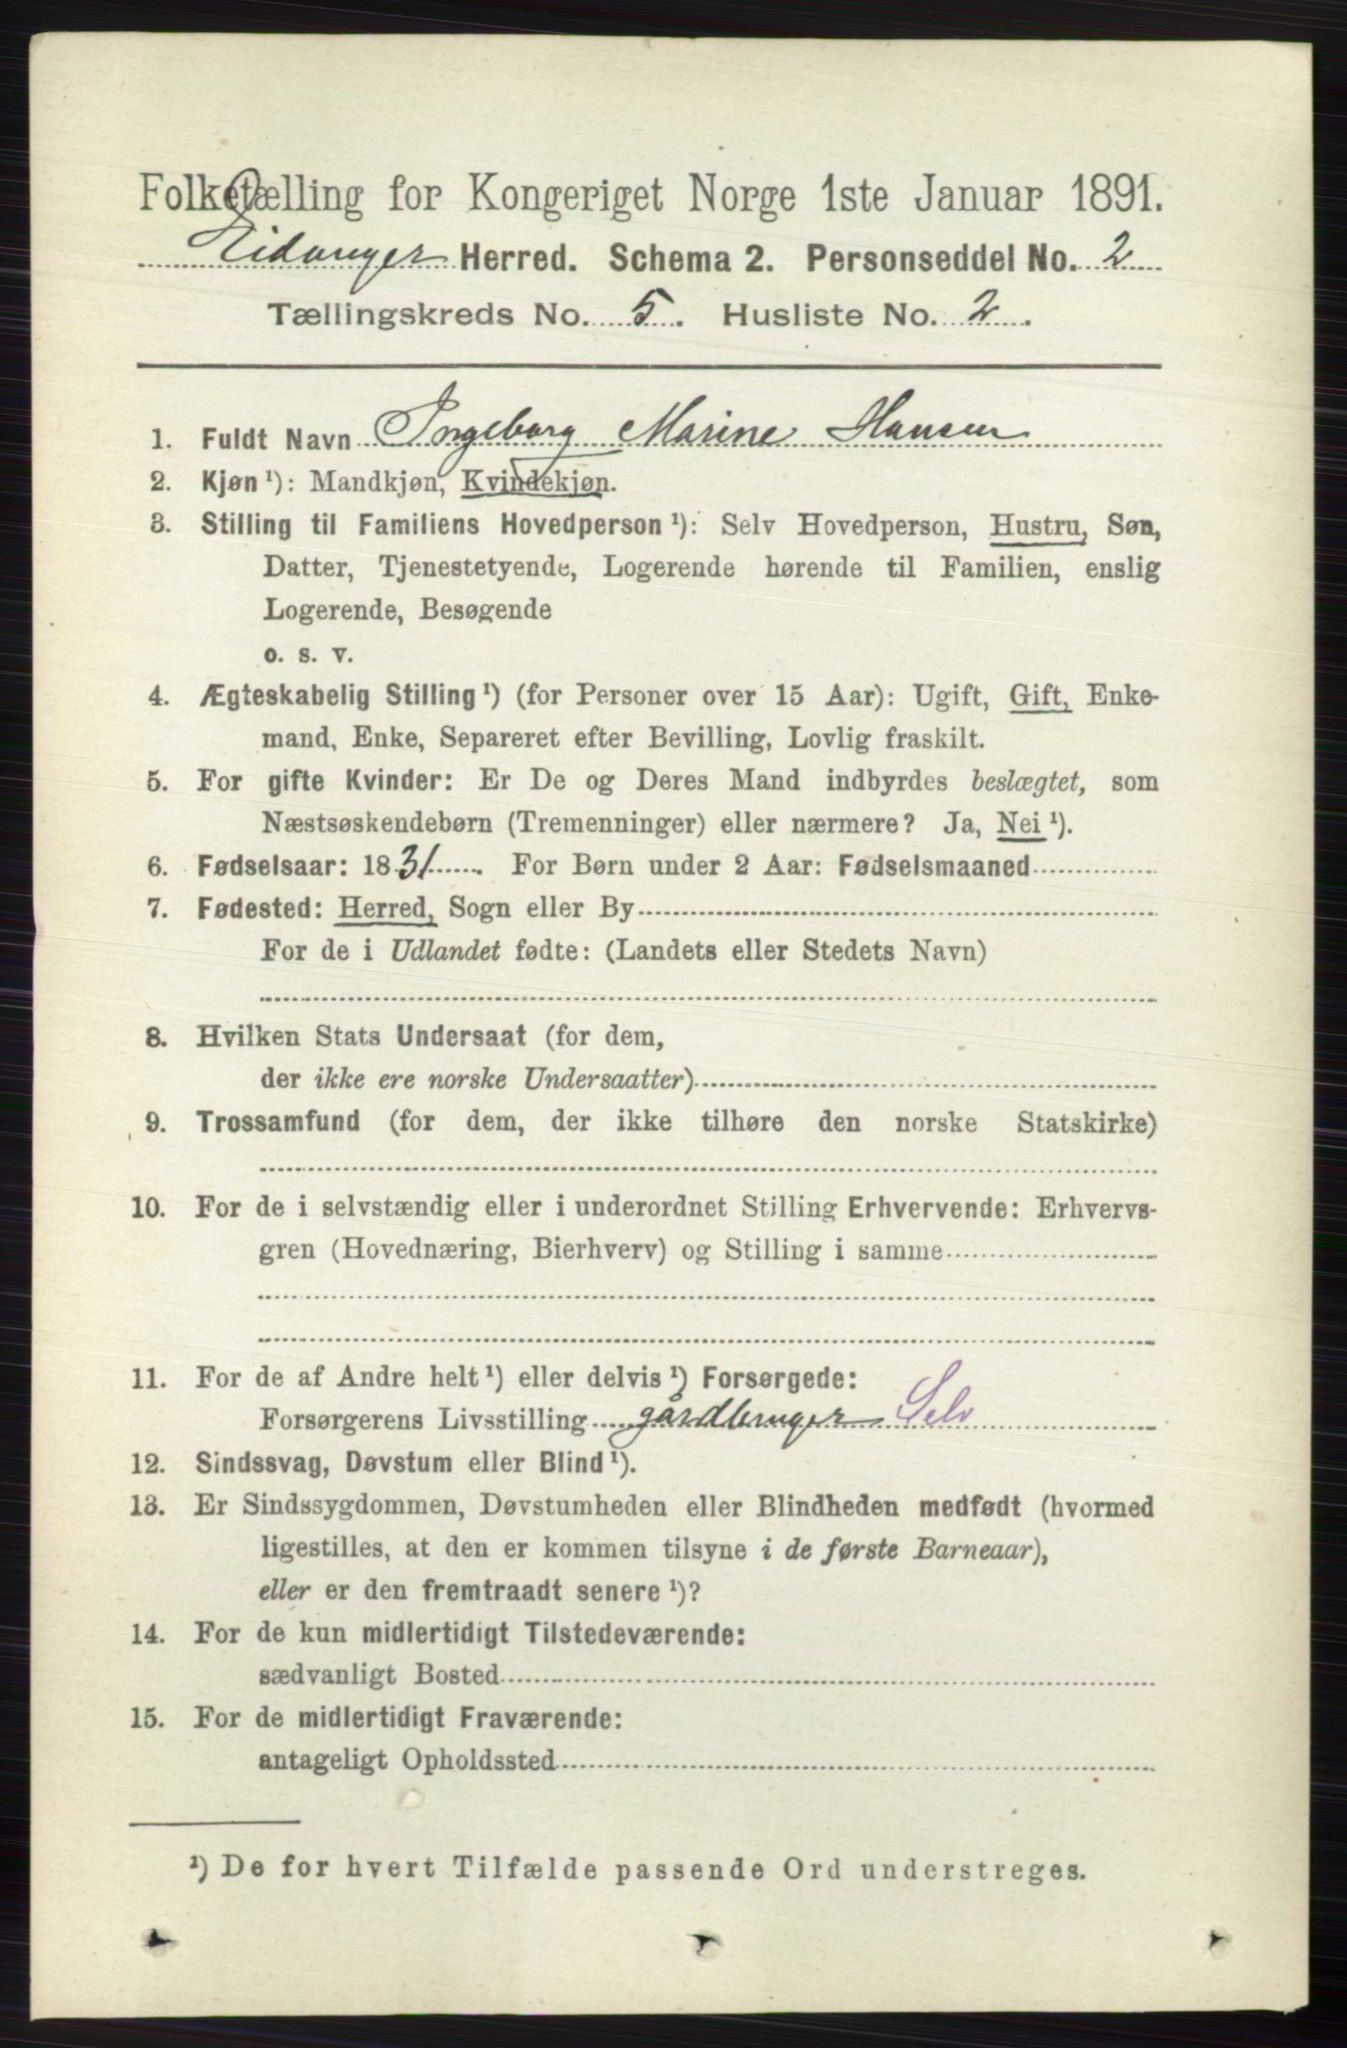 Folketælling for Kongeriget Norge 1ste Januar 1891.
Eidanger Herred. Schema 2. Personseddel No. 2
Tællingskreds No. 5. Husliste No. 2.
1. Fuldt Navn Ingeborg Marine Hansen
2. Kjøn ¹): Mandkjøn, Kvindekjøn.
3. Stilling til Familiens Hovedperson ¹): Selv Hovedperson, Hustru, Søn,
Datter, Tjenestetyende, Logerende hørende til Familien, enslig
Logerende, Besøgende
o. s. v.
4. Ægteskabelig Stilling ¹) (for Personer over 15 Aar): Ugift, Gift, Enke-
mand, Enke, Separeret efter Bevilling, Lovlig fraskilt.
5. For gifte Kvinder: Er De og Deres Mand indbyrdes beslægtet, som
Næstsøskendebørn (Tremenninger) eller nærmere? Ja, Nei ¹).
6. Fødselsaar: 1831. For Børn under 2 Aar: Fødselsmaaned
7. Fødested: Herred, Sogn eller By
For de i Udlandet fødte: (Landets eller Stedets Navn)
8. Hvilken Stats Undersaat (for dem,
der ikke ere norske Undersaatter)
9. Trossamfund (for dem, der ikke tilhøre den norske Statskirke)
10. For de i selvstændig eller i underordnet Stilling Erhvervende: Erhvervs-
gren (Hovednæring, Bierhverv) og Stilling i samme
11. For de af Andre helt ¹) eller delvis ¹) Forsørgede:
Forsørgerens Livsstilling gårdbruger Selv
12. Sindssvag, Døvstum eller Blind ¹).
13. Er Sindssygdommen, Døvstumheden eller Blindheden medfødt (hvormed
ligestilles, at den er kommen tilsyne i de første Barneaar),
eller er den fremtraadt senere ¹)?
14. For de kun midlertidigt Tilstedeværende:
sædvanligt Bosted
15. For de midlertidigt Fraværende:
antageligt Opholdssted
¹) De for hvert Tilfælde passende Ord understreges.